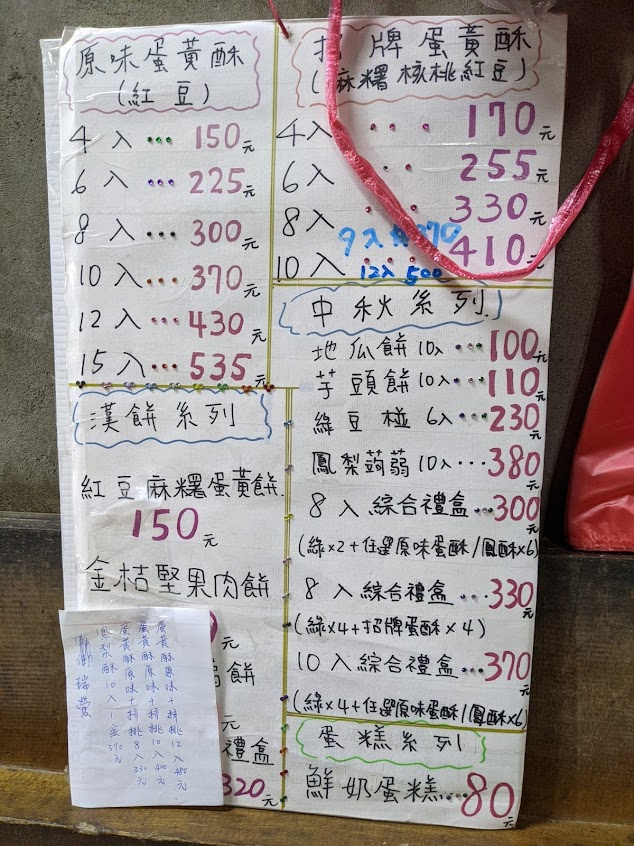 原味蛋黃酥
(紅豆)
4入…150元
6入…225元
8入…300元
10入…370元
12入…430元
15入…535元
招牌蛋黃酥
(麻糬核桃紅豆)
4入…170元
6入…255元
8入…330元
9入
370
10入…410元
12入 500
漢餅系列
紅豆麻糬蛋黃餅
150元
金桔堅果肉餅
元
餅
元
禮盒
320元
中秋系列
地瓜餅10入…100元
芋頭餅10入…110元
綠豆椪6入…230元
鳳梨蒟蒻10入…380元
8入綜合禮盒…300元
(綠x2+任選原味蛋酥/鳳酥x6)
8入綜合禮盒…330元
(綠x4+招牌蛋酥x4)
10入綜合禮盒…370元
(綠x4+任選原味蛋酥/鳳酥x6)
蛋糕系列
鮮奶蛋糕…80元
蛋黃酥原味+核桃12入480元
蛋黃酥原味+核桃10入400元
蛋黃酥原味+核桃8入330元
鳳梨酥10入1盒370元